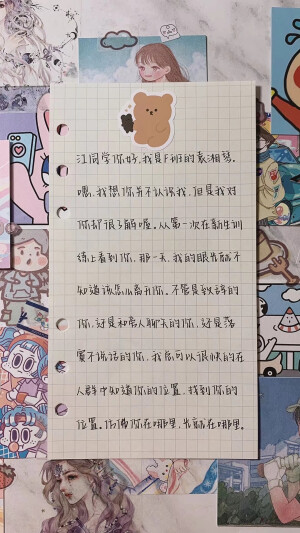 江同学你好,我是F班的袁湘琴。
嗯,我想你并不认识我,但是我对
你却很了解喔。从第一次在新生训
练上看到你,那一天,我的眼光就不
知道该怎么离开你。不管是致辞的
你,还是和旁人聊天的你,还是落
寞不说话的你,我总可以很快的在
人群中知道你的位置,找到你的
位置。仿佛你在哪里,光就在哪里。